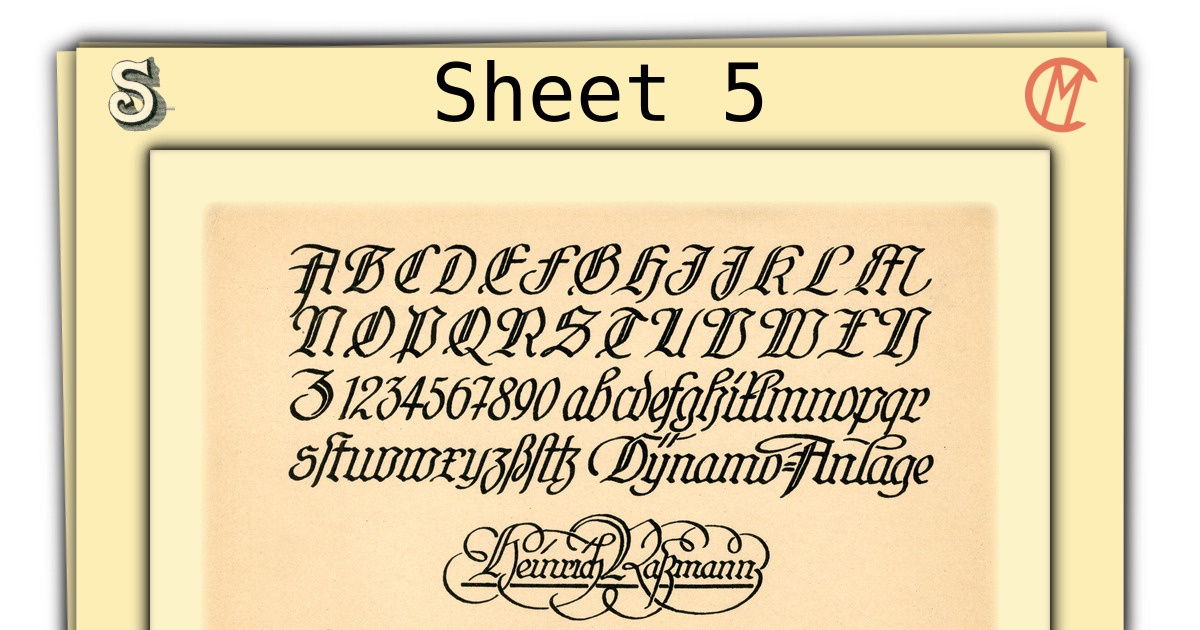 S
Sheet 5
CM
A B C D E F G H I J K L M
N O P Q R S T U V W X Y
Z 1234567890 abcdefghiklmnopqr
sſtuvwxyzßſttz Dynamo=Anlage
Heinrich Raßmann